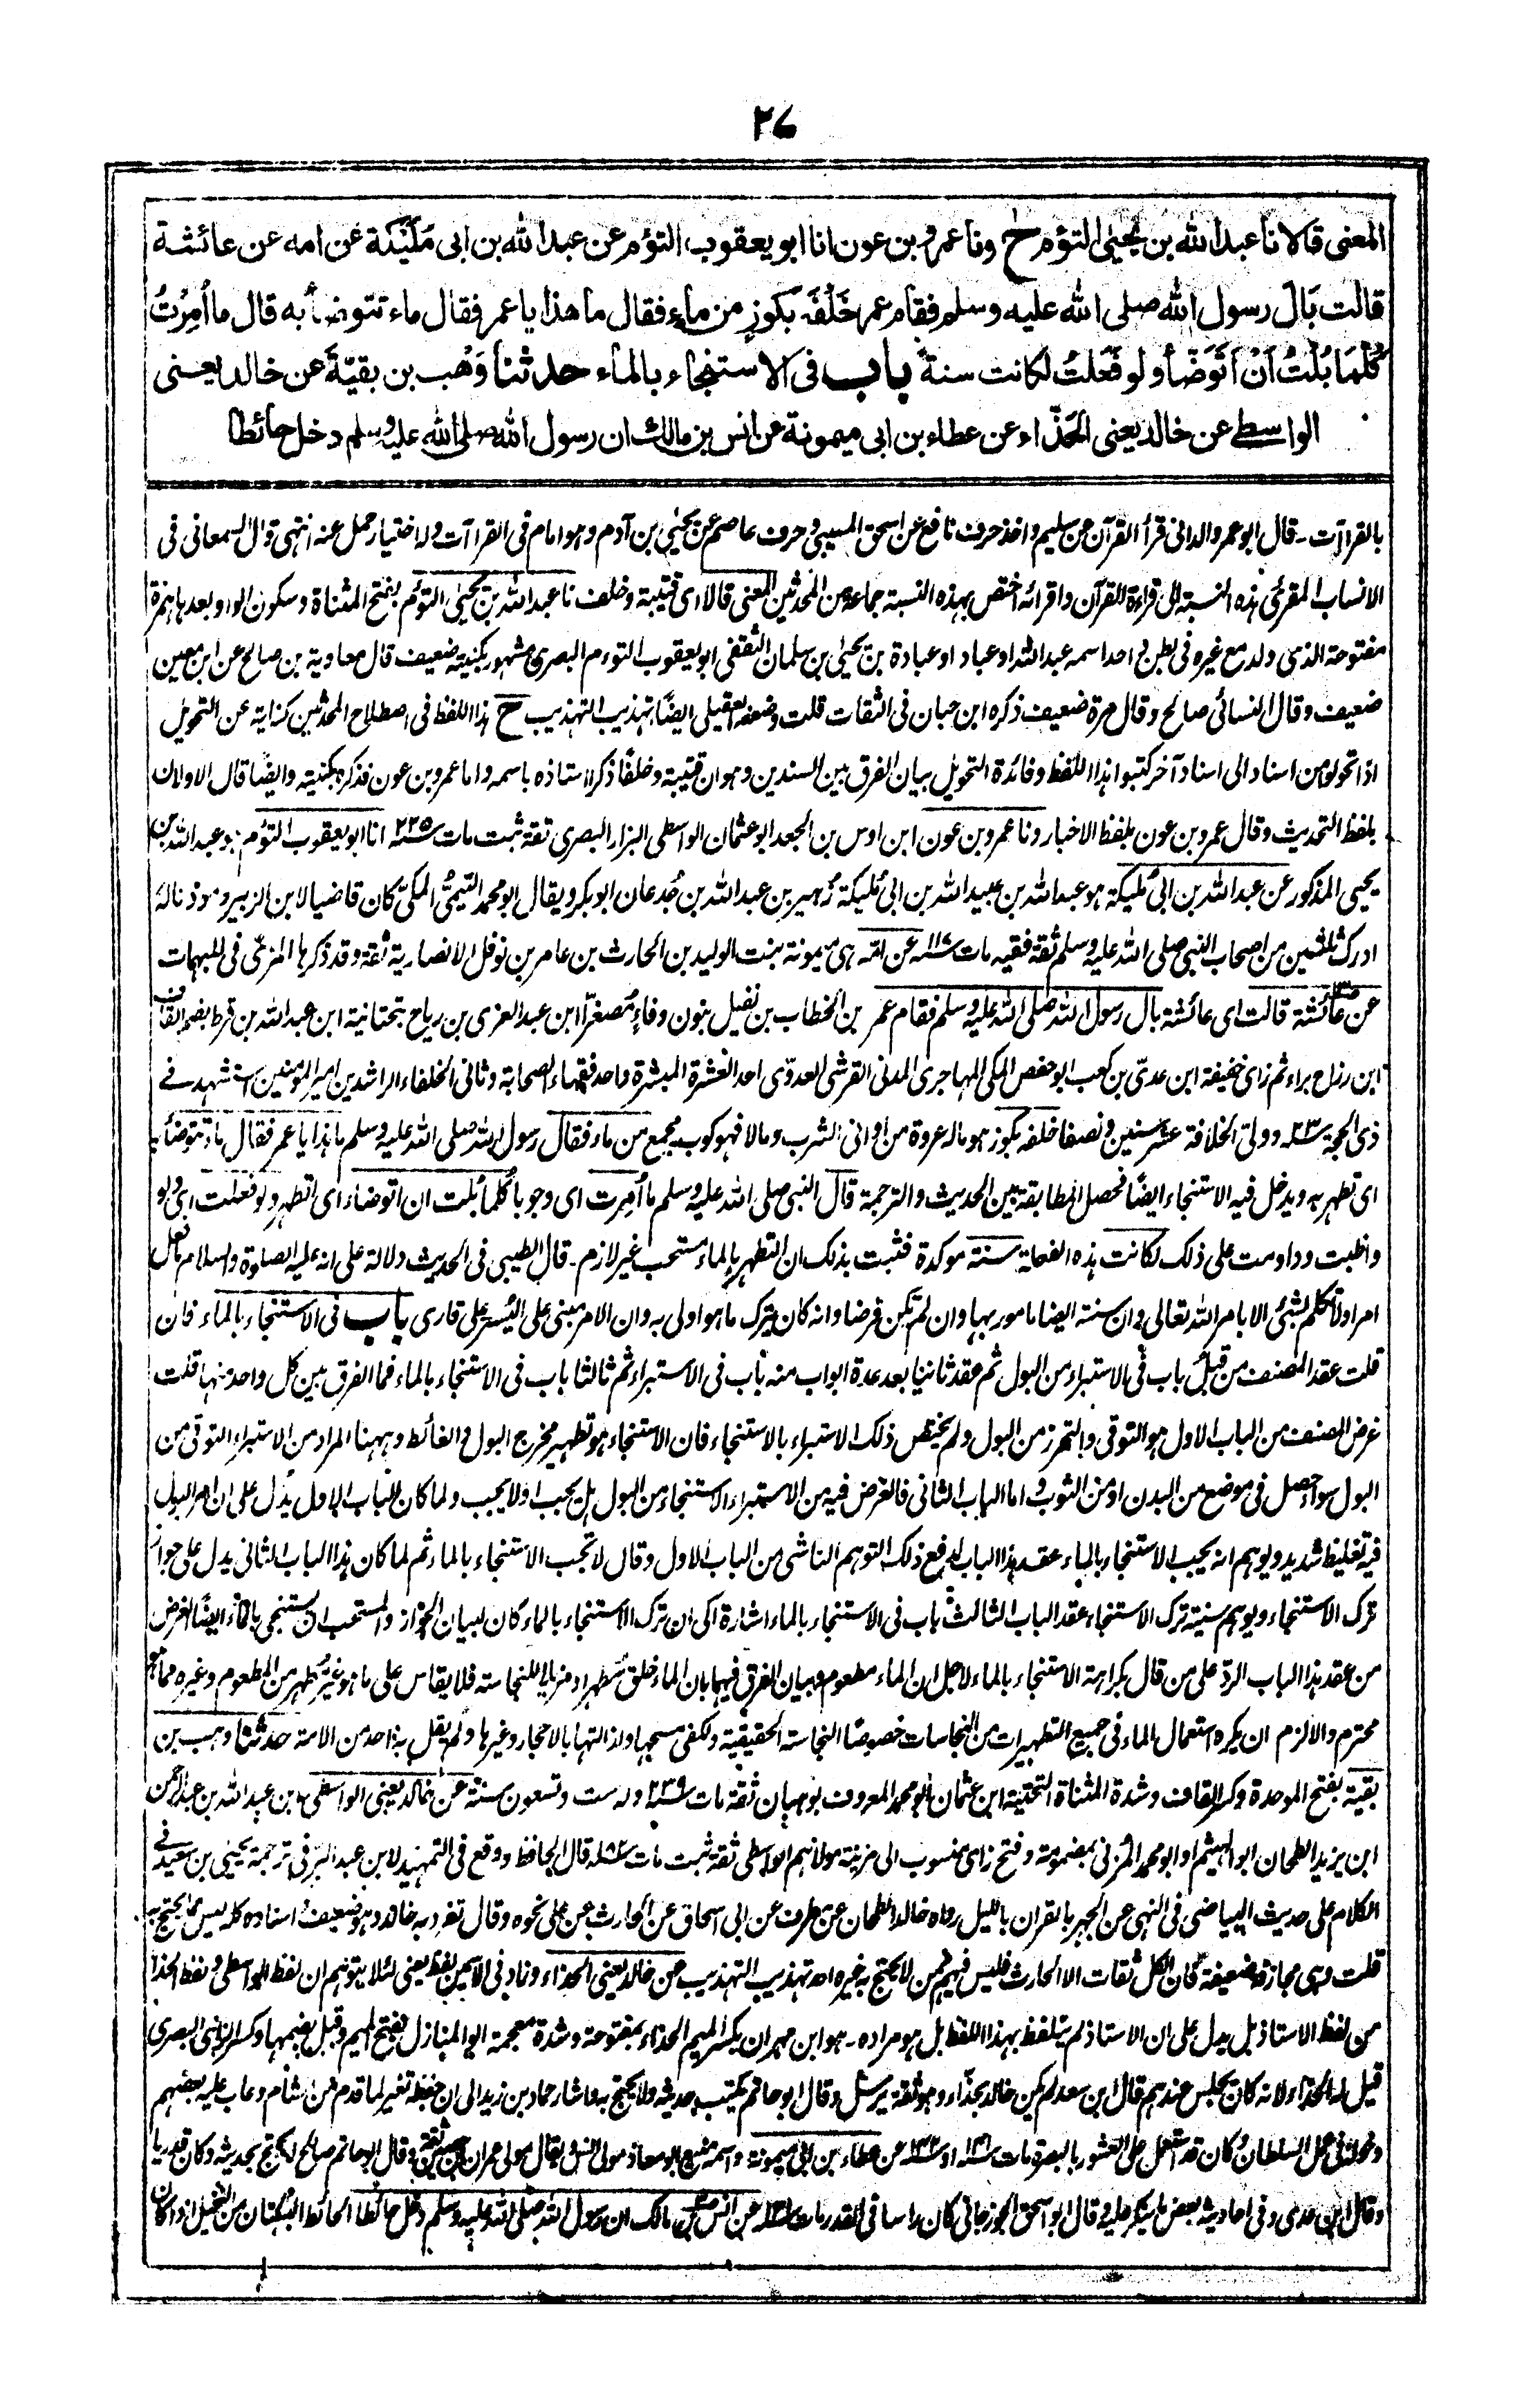 ٢٧
المعنى قالا نا عبد الله بن يحيىٰ التوءم ح ونا عمرو بن عون انا ابو يعقوب التوءم عن عبد الله بن ابى مُلَيْكَة عن امه عن عائشة
قالت بَالَ رسول الله صلى الله عليه وسلم فقام عمر خَلْفَه بكوزٍ من ماءٍ فقال ما هذا يا عمر فقال ماء تتوضأ به قال ما اُمِرْتُ
كُلَّمَا بُلْتُ اَنْ اَتَوَضَّأ ولو فَعَلتُ لكانت سنة باب فى الاستنجاء بالماء حدثنا وَهْب بن بقيّة عن خالد يعنى
الواسطے عن خالد يعنى الحَذّاء عن عطاء بن ابى ميمونة عن انس بن مالك ان رسول الله صلى الله عليه وسلم دخل حائطا
بالقراآت ۔ قال ابو عمرو الدانى قرأ القرآن عن سليم واخذ حرف نافع عن اسحٰق المسيبى وحرف عاصم عن يحيىٰ بن آدم وهو امام فى القراآت وله اختيار حمل عنه انتهى وقال السمعانى فى
الانساب المقرئى هذه النسبة الى قراءة القرآن واقرائه اختص بهذه النسبة جماعة من المحدثين المعنى قالا اى قتيبة وخلف نا عبد الله بن يحيىٰ التوئم بفتح المثناة وسكون الواو بعدها همزة
مفتوحة الذى ولد مع غيره فى بطن احد اسمه عبد الله او عباد او عبادة بن يحيىٰ بن سلمان الثقفى ابو يعقوب التوءم البصرى مشهور بكنيته ضعيف قال معاوية بن صالح عن ابن معين
ضعيف وقال النسائى صالح وقال مرة ضعيف ذكره ابن حبان فى الثقات قلت وضعفه العقيلى ايضًا تهذيب التهذيب ح هذا اللفظ فى اصطلاح المحدثين كناية عن التحويل
اذا تحولوا من اسناد الى اسناد آخر كتبوا هذا اللفظ وفائدة التحويل بيان الفرق بين السندين وهو ان قتيبة وخلفًا ذكرا استاذه باسمه واما عمرو بن عون فذكره بكنيته وايضًا قال الاولان
بلفظ التحديث وقال عمرو بن عون بلفظ الاخبار ونا عمرو بن عون ابن اوس بن الجعد ابو عثمان الواسطى البزار البصرى ثقة ثبت مات سنة ٢٢٥ انا ابو يعقوب التؤم هو عبد الله بن
يحيى المذكور عن عبد الله بن ابى مُليكة هو عبد الله بن عبيد الله بن ابى مُليكة زُهير بن عبد الله بن جُدعان ابو بكر ويقال ابو محمد التيمىُّ المكىّ كان قاضيا لابن الزبير ومؤذنا له
ادرك ثلثين من اصحاب النبى صلى الله عليه وسلم ثقة فقيه مات سنة ١١٧ عن امّه هى ميمونة بنت الوليد بن الحارث بن عامر بن نوفل الانصارية ثقة وقد ذكرها المزىّ فى المبهمات
عن عائشة قالت اى عائشة بال رسول الله صلى الله عليه وسلم فقام عمر بن الخطاب بن نفيل بنون وفاءٍ مُصغّراً ابن عبد العزى بن رياح بتحتانية ابن عبد الله بن قرط بضم القاف
ابن رزاح براء ثم زاى خفيفة ابن عدىّ بن كعب ابو حفص المكى المهاجرى المدنى القرشى العدوّى احد العشرة المبشرة واحد فقهاء الصحابة وثانى الخلفاء الراشدين امير المؤمنين استشهد فے
ذى الحجة سنة ٢٣ وولى الخلافة عشر سنين ونصفا خلفه بكوز هو ماله عروة من اوانى الشرب ومالا فهو كوب مجمع من ماء فقال رسول الله صلى الله عليه وسلم ما هذا يا عمر فقال ماء تتوضأ به
اى تطهر به ويدخل فيه الاستنجاء ايضًا فحصل المطابقة بين الحديث والترجمة قال النبى صلى الله عليه وسلم ما اُمِرت اى وجوبا كُلما بُلت ان اتوضاء اى اتطهر ولو فعلت اى ولو
واظبت وداومت على ذلك لكانت هذه الفعلة سنة موكدة فثبت بذلك ان التطهر بالماء مستحب غير لازم ۔ قال الطيبى فى الحديث دلالة على انه عليه الصلوة والسلام ما فعل
امرا ولا تكلم بشئ الا بامر الله تعالى وان سنته ايضا مامور بها وان لم تكن فرضا وانه كان يترك ما هو اولى به وان الامر مبنى على اليُسر على قارى باب فى الاستنجاء بالماء فان
قلت عقد المصنف من قبل باب فى الاستبراء من البول ثم عقد ثانيا بعد عدة ابواب منه باب فى الاستبراء ثم ثالثا باب فى الاستنجاء بالماء فما الفرق بين كل واحد منها قلت
غرض المصنف من الباب الاول هو التوقى والتحرز من البول ولم يختص ذلك الاستبراء بالاستنجاء فان الاستنجاء هو تطهير مخرج البول والغائط وههنا المراد من الاستبراء التوقى من
البول سواء حصل فى موضع من البدن او من الثوب واما الباب الثانى فالغرض فيه من الاستبراء الاستنجاء من البول هل يجب او لا يجب ولما كان الباب الاول يدل على ان امر البول
فيه تغليظ شديد ويوهم انه يجب الاستنجاء بالماء عقد هذا الباب لدفع ذلك التوهم الناشى من الباب الاول وقال لا تجب الاستنجاء بالماء ثم لما كان هذا الباب الثانى يدل على جواز
ترك الاستنجاء ويوهم سنية ترك الاستنجاء عقد الباب الثالث باب فى الاستنجاء بالماء اشارة الى ان ترك الاستنجاء بالماء كان لبيان الجواز والمستحب ان يستنجى بالماء ايضًا الغرض
من عقد هذا الباب الرد على من قال بكراهة الاستنجاء بالماء لاجل ان الماء مطعوم وبيان الفرق فيهما بان الماء خلق مطهرا ومزيلا للنجاسة فلا يقاس على ما هو غير مُطهر من المطعوم وغيره مما هو
محترم والا لزم ان يكره استعمال الماء فى جميع التطهيرات من النجاسات خصوصًا النجاسة الحقيقية ولكفى مسحها وازالتها بالاحجار وغيرها ولم يقل به احد من الامة حدثنا وهب بن
بقية بفتح الموحدة وكسر القاف وشدة المثناة التحتية ابن عثمان ابو محمد المعروف بوهبان ثقة مات سنة ٢٣٩ وله ست وتسعون سنة عن خالد يعنى الواسطى ابن عبد الله بن عبد الرحمن
ابن يزيد الطحان ابو الهيثم او ابو محمد المُزنى بمضمومة وفتح زاى منسوب الى مزينة مولاهم الواسطى ثقة ثبت مات سنة ١٨٢ قال الحافظ ووقع فى التمهيد لابن عبد البر فى ترجمة يحيى بن سعيد فے
الكلام على حديث البياضى فى النهى عن الجهر بالقرآن بالليل رواه خالد الطحان عن مطرف عن ابى اسحاق عن الحارث عن على نحوه وقال تفرد به خالد وهو ضعيف اسناده كله ليس مما يحتج به
قلت وهى مجازفة ضعيفة فان الكل ثقات الا الحارث فليس فيهم ممن لا يحتج به غيره اھ تهذيب التهذيب عن خالد يعنى الحذاء وزاد فى الاسمين لفظ يعنى لئلا يتوهم ان لفظ الواسطى ولفظ الحذاء
من لفظ الاستاذ بل يدل على ان الاستاذ لم يتلفظ بهذا اللفظ بل هو مراده ۔ هو ابن مهران بكسر الميم الحذاء بمفتوحة وشدة معجمة ابو المنازل بفتح الميم وقيل بضمها وكسر الزاى البصرى
قيل له الحذاء لانه كان يجلس عندهم قال ابن سعد لم يكن خالد بحذّاء وهو ثقة يرسل وقال ابو حاتم يكتب حديثه ولا يحتج به واشار حماد بن زيد الى ان حفظه تغير لما قدم من الشام وعاب عليه بعضهم
دخوله فى عمل السلطان وكان قد استعمل على العشور بالبصرة مات سنة ١٤١ او سنة ١٤٢ عن عطاء بن ابى ميمونة واسمه منيع ابو معاذ مولى انس ويقال مولى عمران بن حصين ثقة وقال ابو حاتم صالح لا يحتج بحديثه وكان قدريا
وقال ابن عدى وفى احاديثه بعض ما ينكر عليه وقال ابو اسحٰق الجوزجانى كان راسا فى القدر مات سنة ١٣١ عن انس بن مالك ان رسول الله صلى الله عليه وسلم دخل حائطا الحائط البستان من النخيل اذا كان